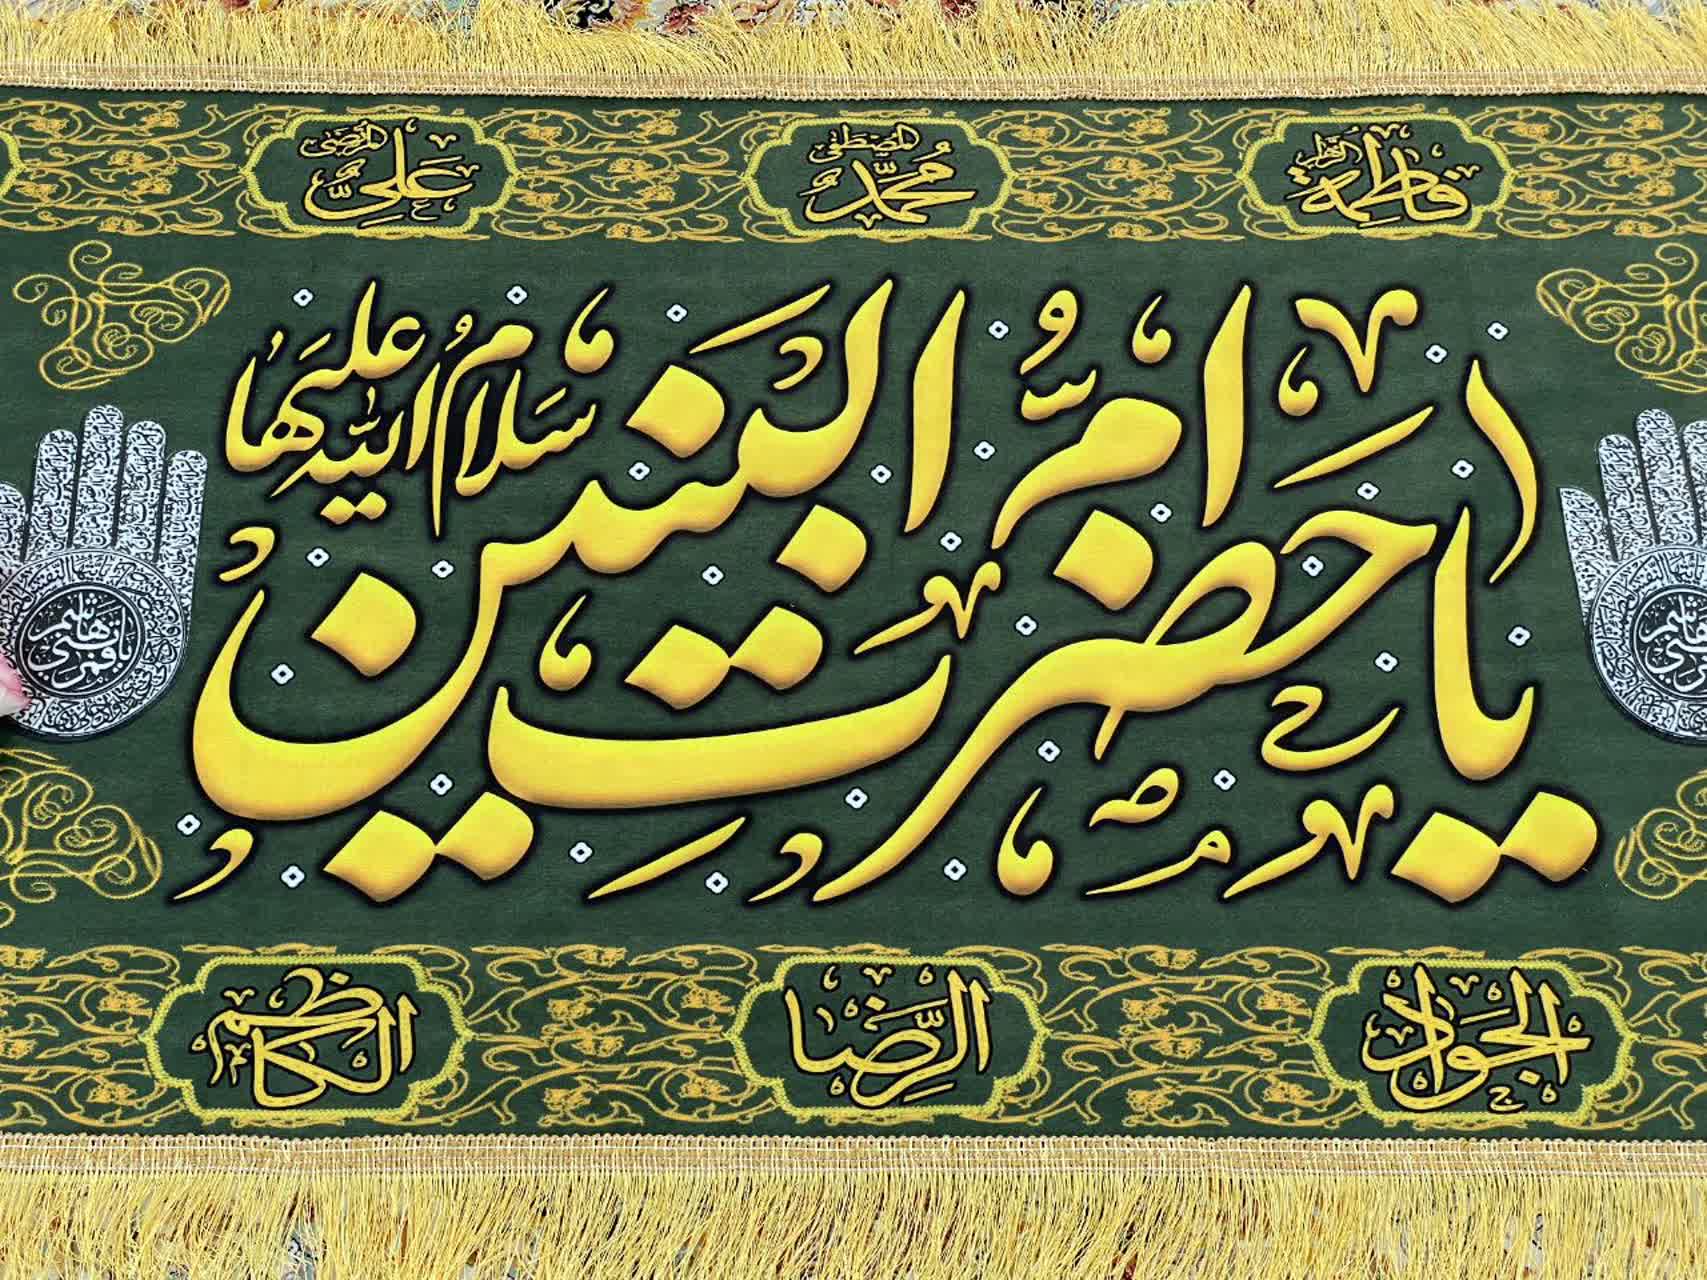 فاطمة الزهراء
محمد المصطفی
علی المرتضی
یا حضرت ام البنین سلام الله علیها
یا قمر بنی هاشم
الجواد
الرضا
الکاظم